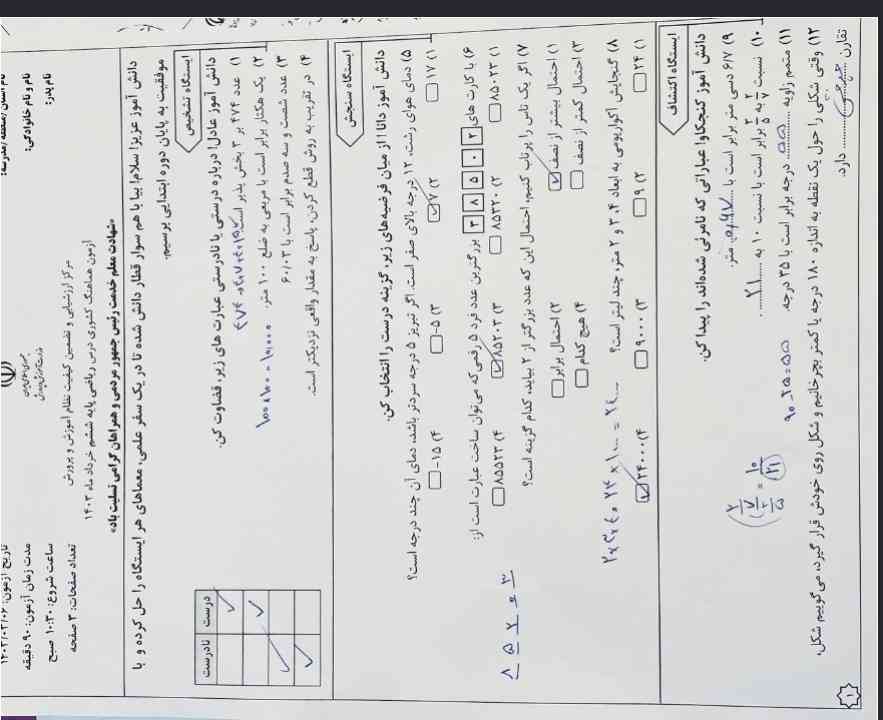 نام و نام خانوادگی:
نام پدر:
مرکز ارزشیابی و تضمین کیفیت نظام آموزش و پرورش
آزمون هماهنگ کشوری درس ریاضی پایه ششم خرداد ماه ۱۴۰۳
«شهادت معلم خدمت رئیس جمهور مردمی و همراهان گرامی تسلیت باد»
مدت زمان آزمون: ۹۰ دقیقه
ساعت شروع: ۱۰:۳۰ صبح
تعداد صفحات: ۳ صفحه
دانش آموز عزیز! سلام! بیا با هم سوار قطار دانش شده تا در یک سفر علمی، معماهای هر ایستگاه را حل کرده و با
موفقیت به پایان دوره ابتدایی برسیم.
ایستگاه تشخیص
دانش آموز عادل! درباره درستی یا نادرستی عبارت های زیر، قضاوت کن.
درست نادرست
۱) عدد ۴۷۴ بر ۳ بخش پذیر است.
۲) یک هکتار برابر است با مربعی به ضلع ۱۰۰ متر. ۱۰۰×۱۰۰=۱۰,۰۰۰
۳) عدد شصت و سه صدم برابر است با ۶۰/۰۳
۴) در تقریب به روش قطع کردن، پاسخ به مقدار واقعی نزدیکتر است.
ایستگاه سنجش
دانش آموز دانا! از میان فرضیه‌های زیر، گزینه درست را انتخاب کن.
۵) دمای هوای رشت، ۱۲ درجه بالای صفر است. اگر تبریز ۵ درجه سردتر باشد، دمای آن چند درجه است؟
۱) ۱۷ ۲) ۷ ۳) ۵- ۴) ۱۵-
۶) با کارت های ۲ ۰ ۵ ۸ ۳ بزرگترین عدد فرد ۵ رقمی که می‌توان ساخت عبارت است از:
۱) ۸۵۰۲۳ ۲) ۸۵۳۲۰ ۳) ۸۵۲۰۳ ۴) ۸۵۵۲۳
۸ ۵ ۲ ۰ ۳
۷) اگر یک تاس را پرتاب کنیم، احتمال این که عدد بزرگتر از ۲ بیاید، کدام گزینه است؟
۱) احتمال بیشتر از نصف ۲) احتمال برابر
۳) احتمال کمتر از نصف ۴) هیچ کدام
۸) گنجایش آکواریومی به ابعاد ۳، ۴ و ۲ متر، چند لیتر است؟
۱) ۲۴ ۲) ۹ ۳) ۹۰۰۰ ۴) ۲۴۰۰۰
ایستگاه اکتشاف
دانش آموز کنجکاو! عباراتی که نامرئی شده‌اند را پیدا کن.
۹) ۶/۷ دسی متر برابر است با ........ متر.
۱۰) نسبت ۲/۷ به ۳/۵ برابر است با نسبت ۱۰ به ... ۲۱ ...
۱۱) متمم زاویه ... ۵۵ ... درجه برابر است با ۳۵ درجه. ۹۰-۳۵=۵۵
۱۲) وقتی شکلی را حول یک نقطه به اندازه ۱۸۰ درجه یا کمتر بچرخانیم و شکل روی خودش قرار گیرد، می‌گوییم شکل،
تقارن ... چرخشی ... دارد.
۱